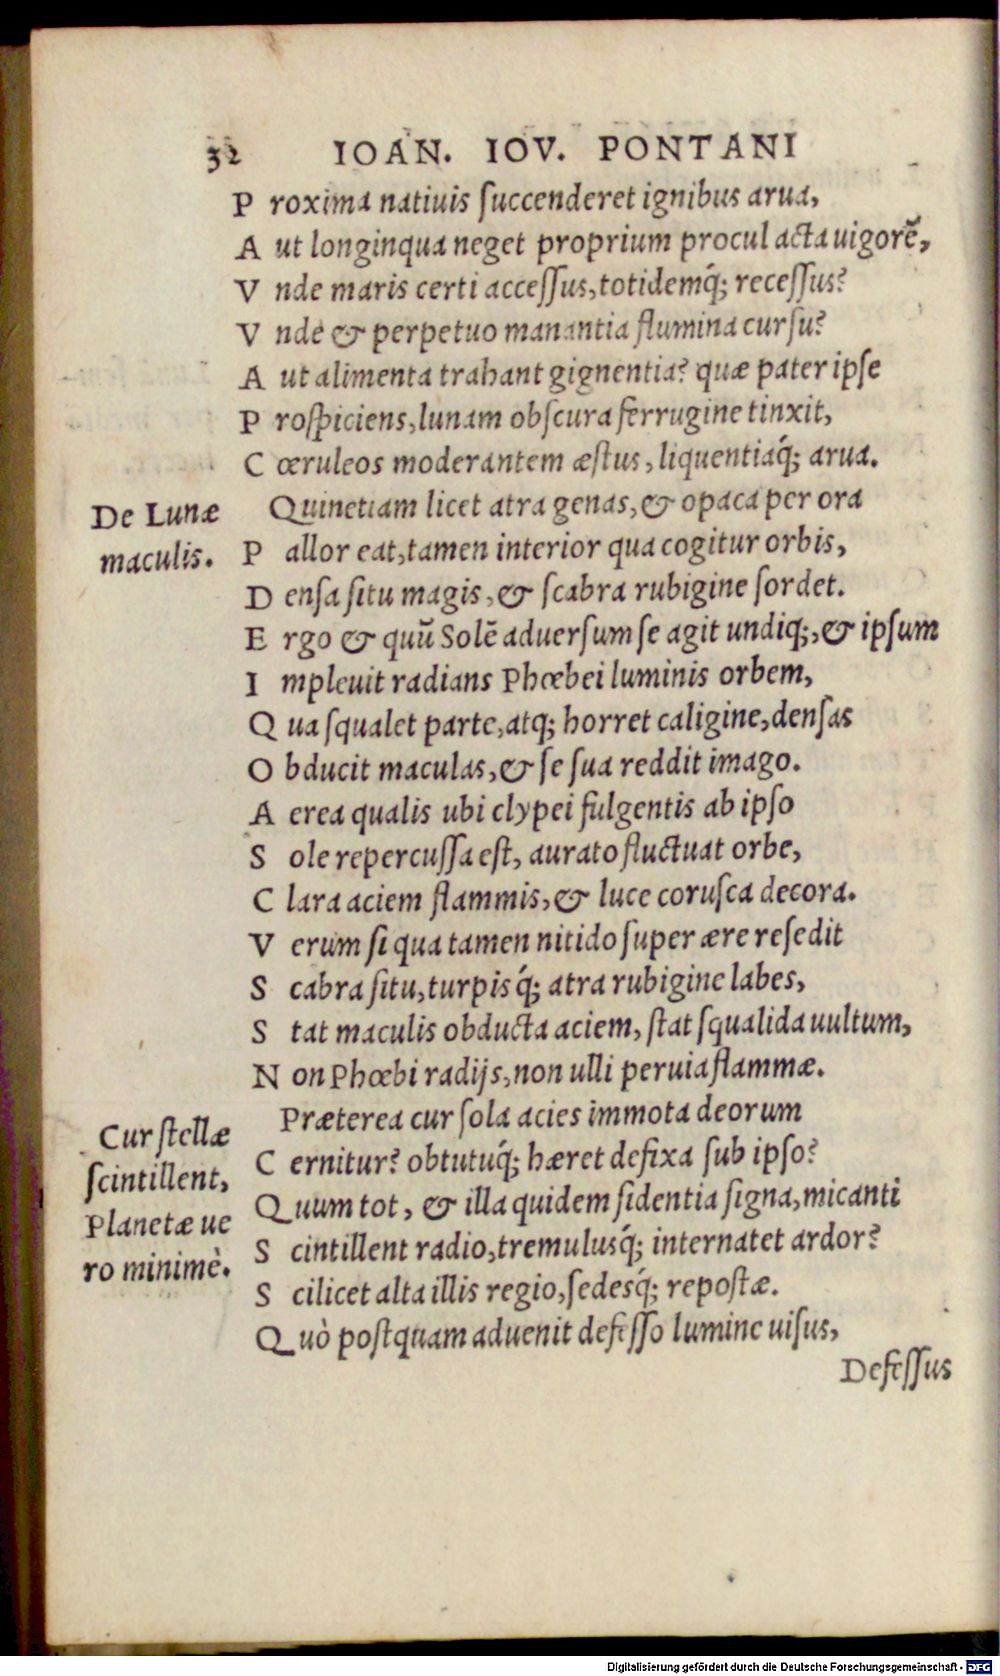 32 IOAN. IOV. PONTANI
P roxima natiuis ſuccenderet ignibus arua,
A ut longinqua neget proprium procul acta uigorẽ,
V nde maris certi acceſſus, totidemq́; receſſus?
V nde & perpetuo manantia flumina curſu?
A ut alimenta trahant gignentia? quæ pater ipſe
P roſpiciens, lunam obſcura ferrugine tinxit,
C œruleos moderantem æſtus, liquentiaq́; arua.
De Lunæ
maculis.
Quinetiam licet atra genas, & opaca per ora
P allor eat, tamen interior qua cogitur orbis,
D enſa ſitu magis, & ſcabra rubigine ſordet.
E rgo & quũ Solẽ aduerſum ſe agit undiq;, & ipſum
I mpleuit radians Phœbei luminis orbem,
Q ua ſqualet parte, atq; horret caligine, denſas
O bducit maculas, & ſe ſua reddit imago.
A erea qualis ubi clypei fulgentis ab ipſo
S ole repercuſſa eſt, aurato fluctuat orbe,
C lara aciem flammis, & luce coruſca decora.
V erum ſi qua tamen nitido ſuper ære reſedit
S cabra ſitu, turpisq́; atra rubigine labes,
S tat maculis obducta aciem, ſtat ſqualida uultum,
N on Phœbi radijs, non ulli peruia flammæ.
Cur ſtellæ
ſcintillent,
Planetæ ue
ro minimè.
Præterea cur ſola acies immota deorum
C ernitur? obtutuq́; hæret defixa ſub ipſo?
Q uum tot, & illa quidem ſidentia ſigna, micanti
S cintillent radio, tremulusq́; internatet ardor?
S cilicet alta illis regio, ſedesq́; repoſtæ.
Q uò poſtquam aduenit defeſſo lumine uiſus,
Defeſſus
Digitalisierung gefördert durch die Deutsche Forschungsgemeinschaft - DFG